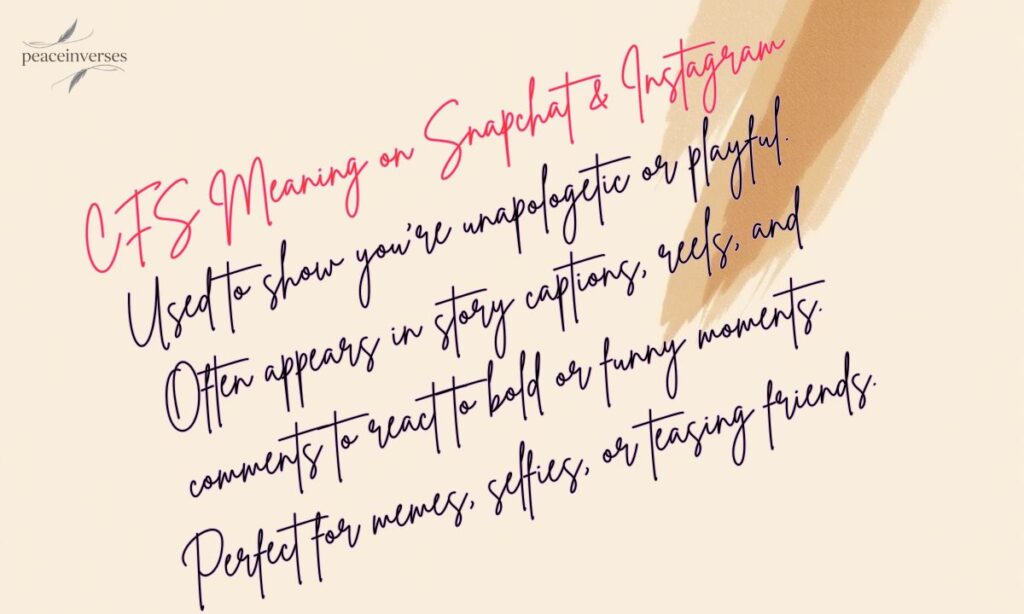 peaceinverses
CFS Meaning on Snapchat & Instagram
Used to show you're unapologetic or playful.
Often appears in story captions, reels, and
comments to react to bold or funny moments.
Perfect for memes, selfies, or teasing friends.